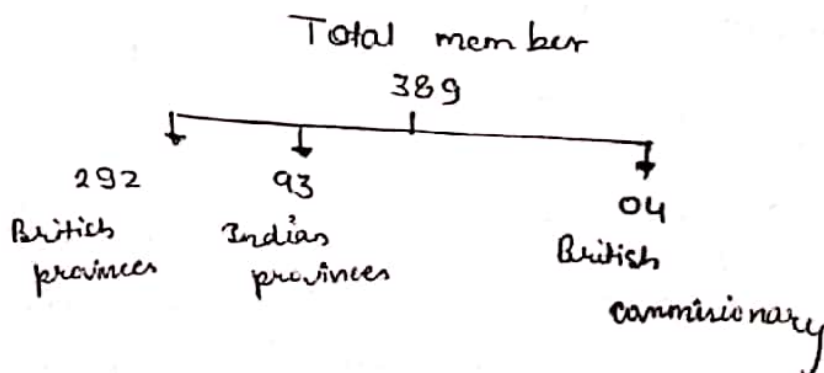 Total member
389
292
British
provinces
93
Indias
provinces
04
British
commisionary